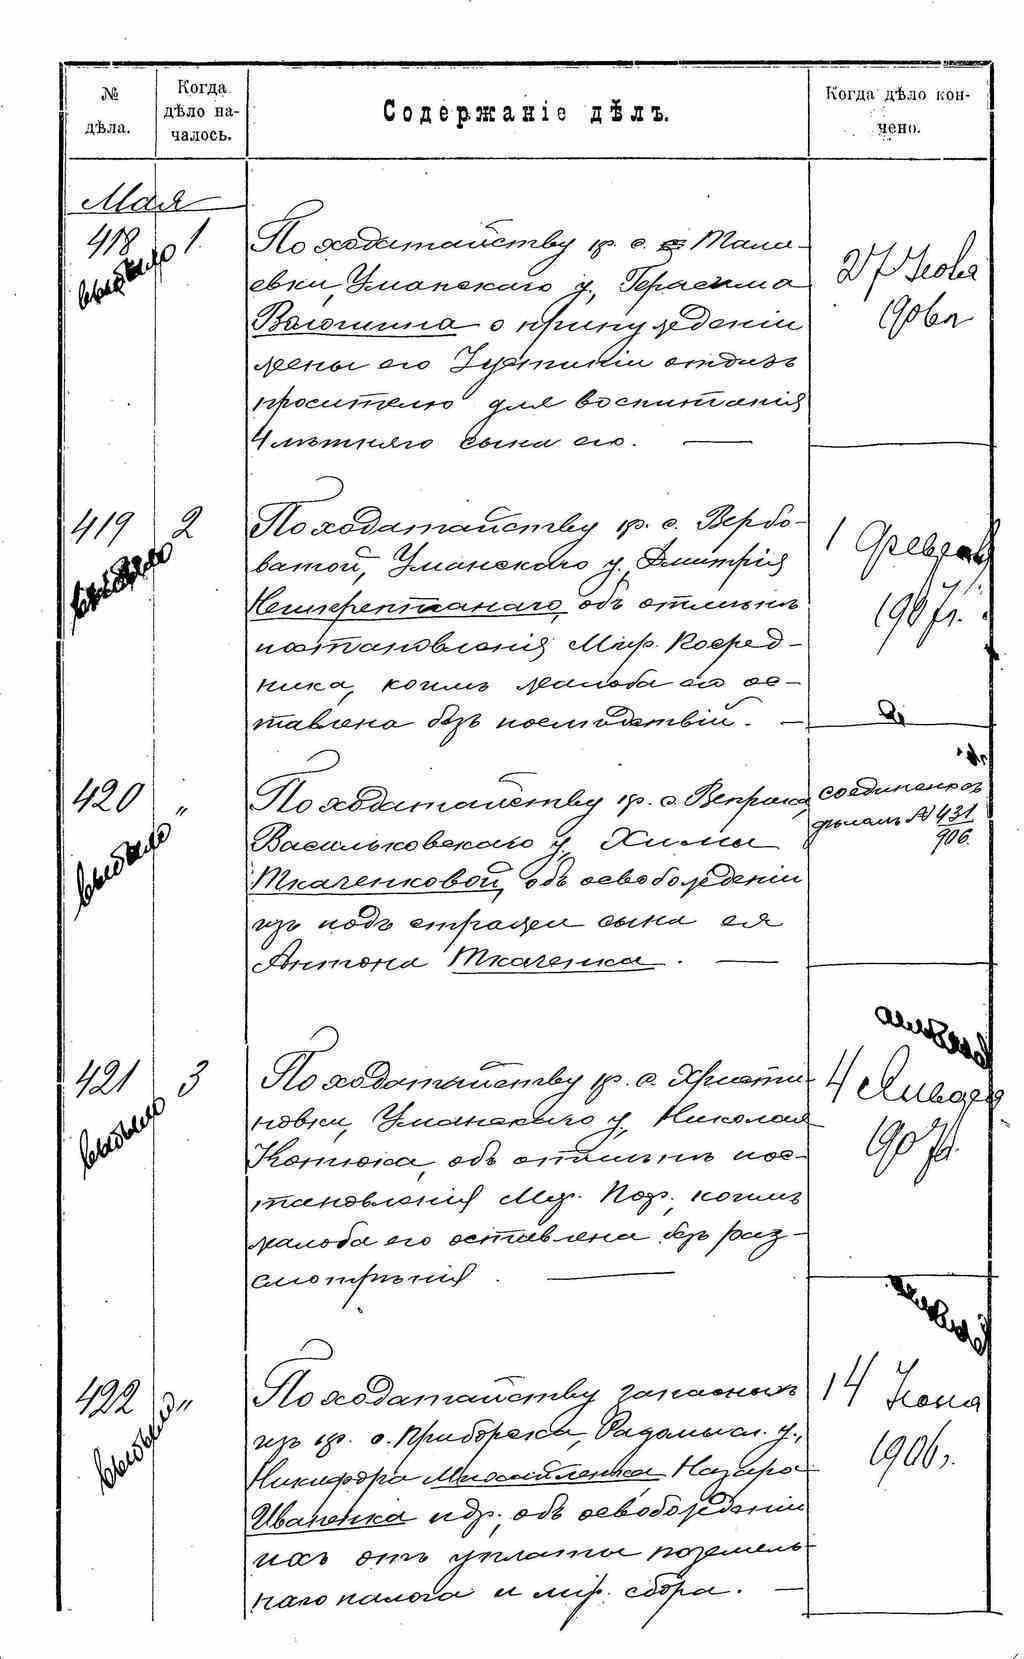 № дѣла.
Когда дѣло началось.
Содержаніе дѣлъ.
Когда дѣло кончено.
Мая
418 1.
выбыло
По ходатайству кр. с. Таль-
евки, Уманскаго у., Герасима
Волошина о принужденіи
жены его Устиніи отдать
просителю для воспитанія
4 лѣтняго сына его. —
27 Іюня
1906 г.
419 2
выбыло
По ходатайству кр. с. Вербо-
ватой, Уманскаго у. Дмитрія
объ отмѣнѣ
постановленія Мир. Посред-
ника, коимъ жалоба его ос-
тавлена безъ послѣдствій. —
1 Февраля
1907 г.
420 "
выбыло
По ходатайству кр. с. Веприка,
Васильковскаго у., Химы
Ткаченковой, объ освобожденіи
изъ подъ стражи сына ея
Антона Ткаченка. —
соединено съ
дѣломъ № 431
906.
421 3
выбыло
По ходатайству кр. с. Христи-
новки, Уманскаго у., Николая
Конюка, объ отмѣнѣ пос-
тановленія Мир. Пос., коимъ
жалоба его оставлена безъ раз-
смотрѣнія. —
выбыло
4 Января
1907 г.
422 "
выбыло
По ходатайству запасныхъ
изъ кр. с. Приборска, Радомысл. у.,
Никифора Михайленка, Назара
Иваненка и др., объ освобожденіи
ихъ отъ уплаты поземель-
наго налога и мір. сбора. —
выбыло
14 Іюня
1906 г.